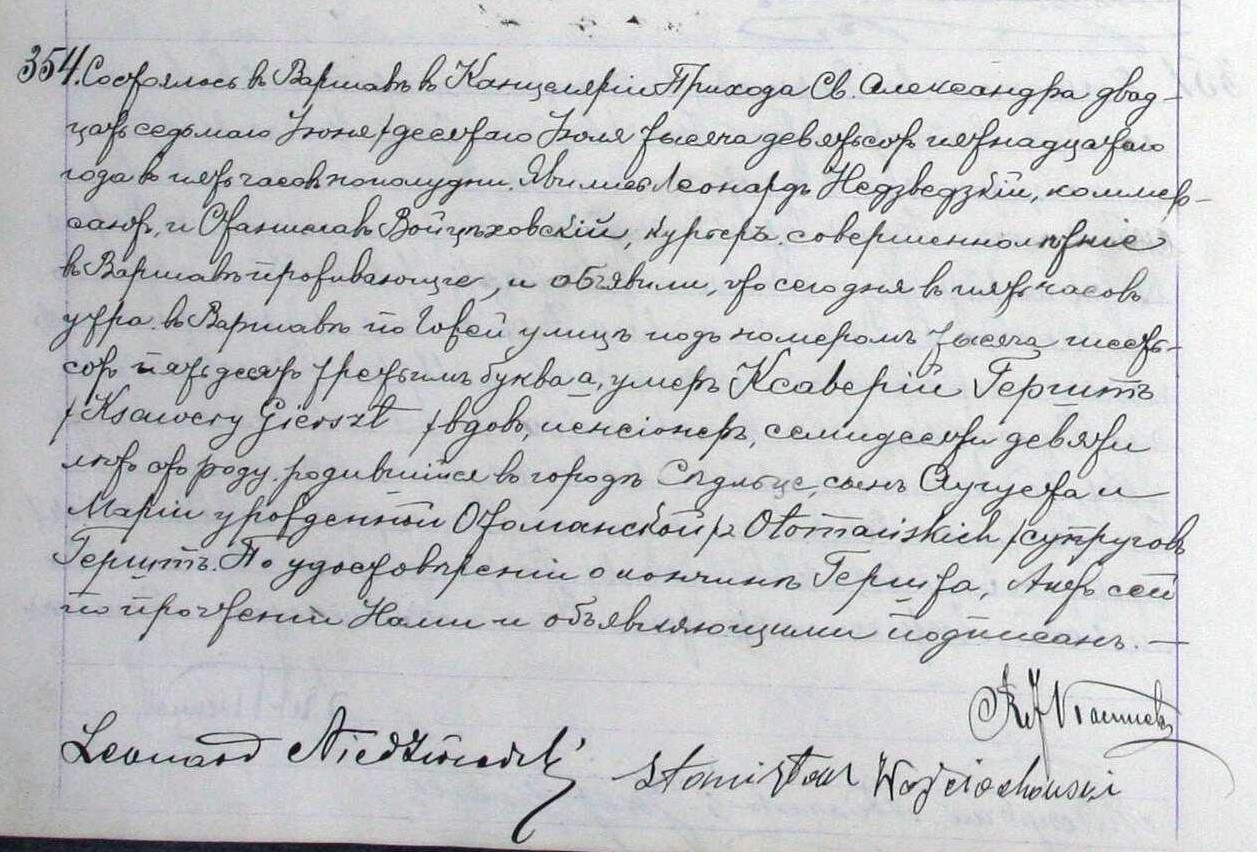 354. Состоялось въ Варшавѣ въ Канцеляріи Прихода Св. Александра двад-
цать седьмаго Іюня /десятаго Іюля тысяча девятьсотъ пятнадцатаго
года въ пять часовъ пополудни. Явились Леонардъ Недзведзкій, коммер-
сантъ, и Станиславъ Войцѣховскій, курьеръ, совершеннолѣтніе
въ Варшавѣ проживающіе, и объявили, что сегодня въ пять часовъ
утра въ Варшавѣ по улицѣ подъ номеромъ тысяча шесть-
сотъ пятьдесятъ третьимъ буква а, умеръ Ксаверій Герштъ
/Ksawery Gierszt/ вдовъ, пенсіонеръ, семидесяти девяти
лѣтъ отъ роду, родившійся въ городѣ Сѣдльце, сынъ Августа и
Маріи урожденной Отоманской /z Otomańskich/ супруговъ
Герштъ. По удостовѣреніи о кончинѣ Гершта, Актъ сей
по прочтеніи Нами и объявляющими подписанъ. —
Leonard Niedźwiedzki Stanisław Wojciechowski